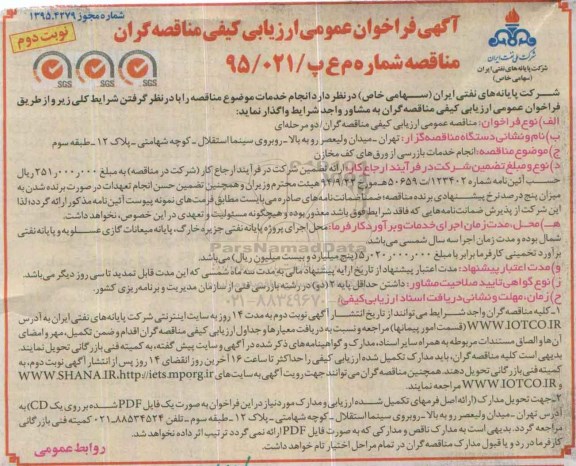 شماره مجوز ۱۳۹۵.۴۲۷۹
نوبت دوم
آگهی فراخوان عمومی ارزیابی کیفی مناقصه گران
مناقصه شماره م ع پ/۹۵/۰۲۱
شرکت ملی نفت ایران
شرکت پایانه های نفتی ایران
(سهامی خاص)
SGS SGS SGS
شرکت پایانه های نفتی ایران (سهامی خاص) در نظر دارد انجام خدمات موضوع مناقصه را با در نظر گرفتن شرایط کلی زیر و از طریق
فراخوان عمومی ارزیابی کیفی مناقصه گران به مشاور واجد شرایط واگذار نماید:
الف) نوع فراخوان: مناقصه عمومی ارزیابی کیفی مناقصه گران / دو مرحله ای
ب) نام و نشانی دستگاه مناقصه گزار: تهران - میدان ولیعصر رو به بالا - روبروی سینما استقلال - کوچه شهامتی - پلاک ۱۲ - طبقه سوم
ج) موضوع مناقصه: انجام خدمات بازرسی از ورق های کف مخازن
د) نوع و مبلغ تضمین شرکت در فرآیند ارجاع کار: ارائه تضمین شرکت در فرآیند ارجاع کار (شرکت در مناقصه) به مبلغ ۲۵۱٫۰۰۰٫۰۰۰ ریال
حسب آئین نامه شماره ۱۲۳۴۰۲/ت ۵۰۶۵۹ هـ مورخ ۹۴/۹/۲۲ هیئت محترم وزیران و همچنین تضمین حسن انجام تعهدات در صورت برنده شدن به
میزان پنج درصد نرخ پیشنهادی برنده مناقصه؛ ضمناً ضمانت نامه های صادره می بایست مطابق فرمت های نمونه پیوست آئین نامه مذکور ارائه گردد؛ لذا
این شرکت از پذیرش ضمانت نامه هایی که فاقد شرایط فوق باشد معذور بوده و هیچگونه مسئولیت و تعهدی در این خصوص، نخواهد داشت.
هـ) محل، مدت زمان اجرای خدمات و برآورد کارفرما: محل اجرای پروژه پایانه نفتی جزیره خارگ، پایانه میعانات گازی عسلویه و پایانه نفتی
شمال بوده و مدت زمان اجرا سه سال شمسی می باشد.
برآورد تخمینی کارفرما برابر با مبلغ ۵٫۰۲۰٫۰۰۰٫۰۰۰ (پنج میلیارد و بیست میلیون ریال) می باشد.
و) مدت اعتبار پیشنهاد: مدت اعتبار پیشنهاد از تاریخ ارایه پیشنهاد مالی به مدت سه ماه شمسی که این مدت قابل تمدید تا سی روز دیگر می باشد.
ز) نوع گواهی تایید صلاحیت مشاور: داشتن حداقل پایه ۲ (دو) در رشته بازرسی فنی از سازمان مدیریت و برنامه ریزی کشور.
ح) زمان، مهلت و نشانی دریافت اسناد ارزیابی کیفی:
۱- کلیه مناقصه گران واجد شرایط می توانند از تاریخ انتشار آگهی نوبت دوم به مدت ۱۴ روز به سایت اینترنتی شرکت پایانه های نفتی ایران به آدرس
WWW.IOTCO.IR (قسمت امور پیمانها) مراجعه و نسبت به دریافت معیارها و جداول ارزیابی کیفی مناقصه گران اقدام و ضمن تکمیل، مهر و امضای
آن ها و الصاق مستندات مربوطه به همراه سایر اسناد، مدارک و گواهینامه های ذکر شده در آگهی و سایت پیش گفته، به کمیته فنی بازرگانی تحویل نمایند.
بدیهی است کلیه مناقصه گران، باید مدارک تکمیل شده ارزیابی کیفی را حداکثر تا ساعت ۱۶ آخرین روز انقضای ۱۴ روز پس از انتشار آگهی نوبت دوم، به
کمیته فنی بازرگانی تحویل دهند. همچنین مناقصه گران می توانند جهت رویت آگهی به سایت های WWW.SHANA.IR، http://iets.mporg.ir
و WWW.IOTCO.IR مراجعه نمایند.
۲- جهت تحویل مدارک (ارائه اصل فرمهای تکمیل شده ارزیابی و مدارک مورد نیاز در این فراخوان به صورت یک فایل PDF شده بر روی یک CD) به
آدرس تهران - میدان ولیعصر رو به بالا - روبروی سینما استقلال - کوچه شهامتی - پلاک ۱۲ - طبقه سوم - تلفن ۸۸۵۳۴۵۲۴-۰۲۱ کمیته فنی بازرگانی
مراجعه گردد. بدیهی است به مدارک ناقص و مدارکی که به صورت فایل PDF ارائه نمی گردد ترتیب اثر داده نخواهد شد.
کارفرما در رد و یا قبول مدارک مناقصه گران در تمام مراحل اختیار تام خواهد داشت.
روابط عمومی
ParsNamadData
۰۲۱-۸۸۳۴۹۶۷۰